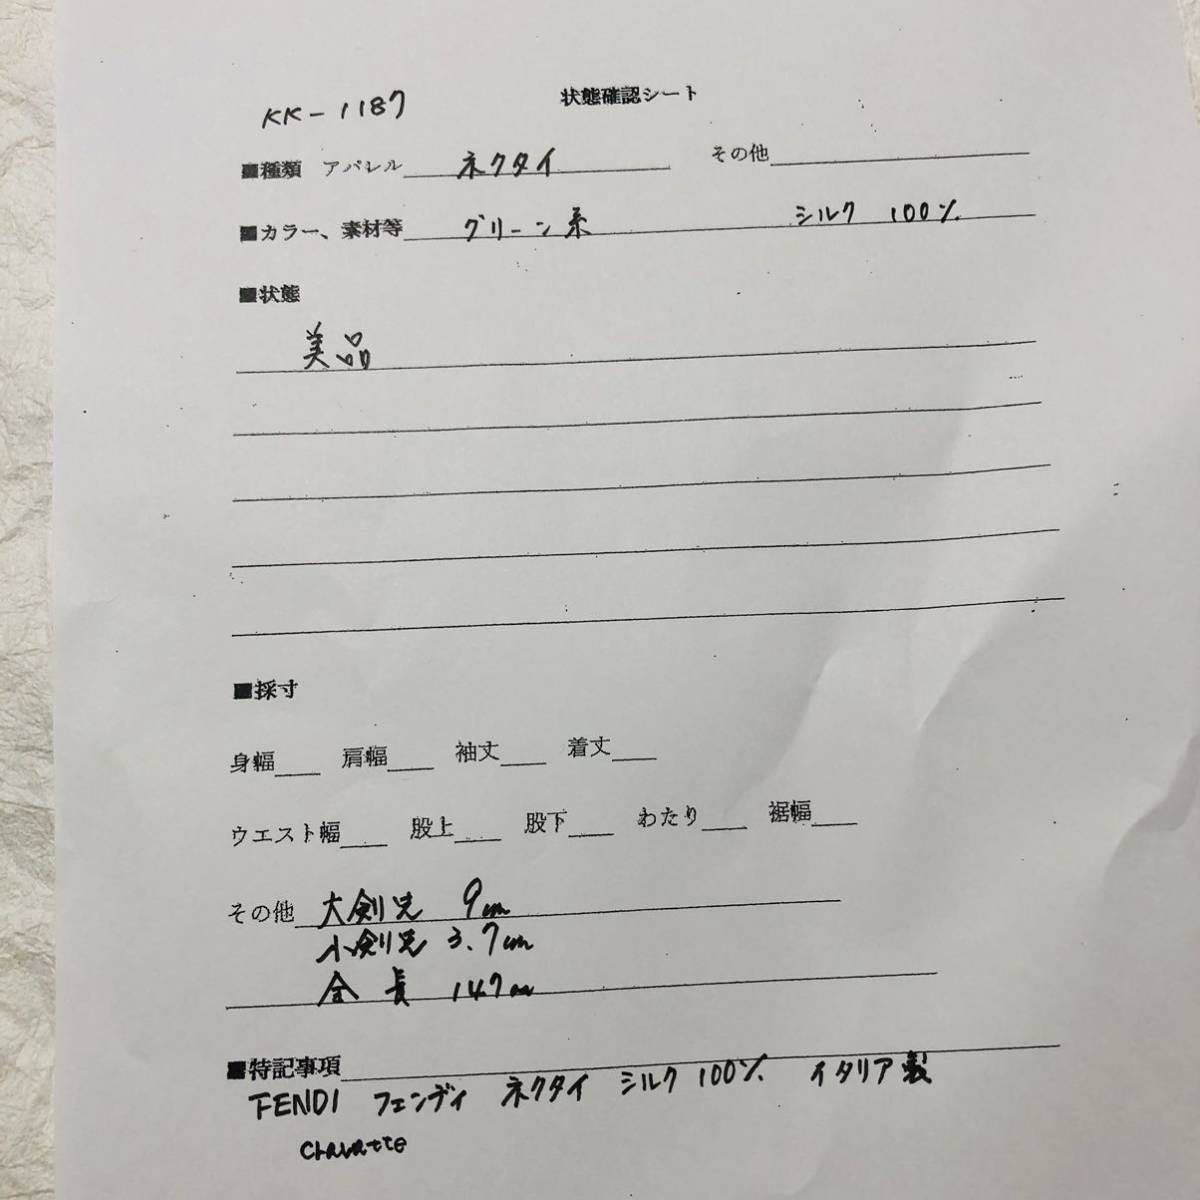 KK-1187
状態確認シート
■種類 アパレル ネクタイ その他
■カラー、素材等 グリーン系 シルク 100%
■状態
美品
■採寸
身幅 肩幅 袖丈 着丈
ウエスト幅 股上 股下 わたり 裾幅
その他 大剣先 9cm
小剣先 3.7cm
全長 147cm
■特記事項
FENDI フェンディ ネクタイ シルク 100% イタリア製